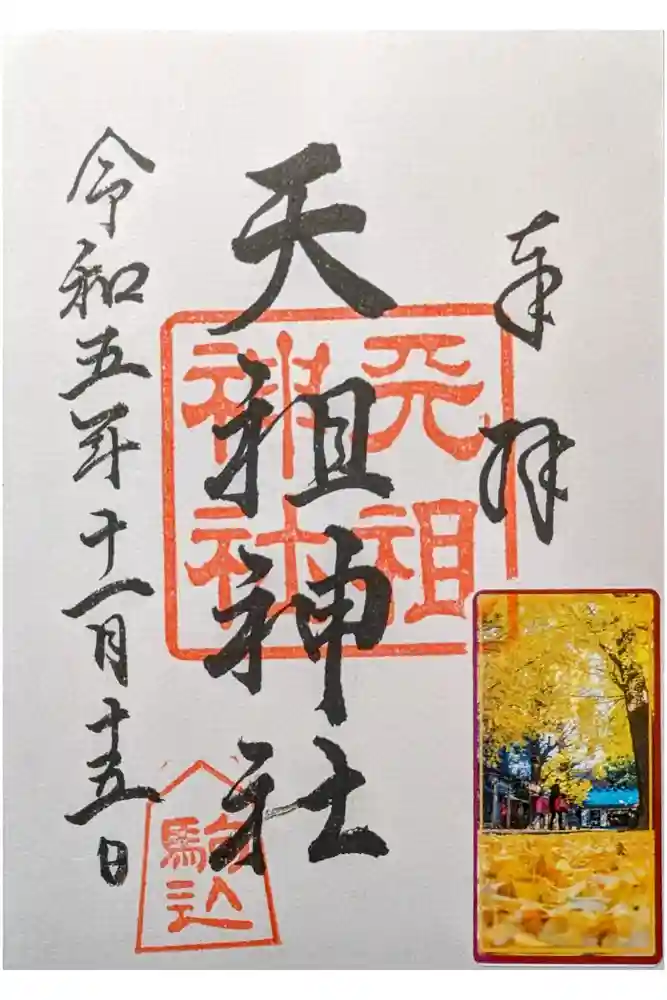 奉拝
天祖神社
天祖
神社
駒込
令和五年十一月十五日